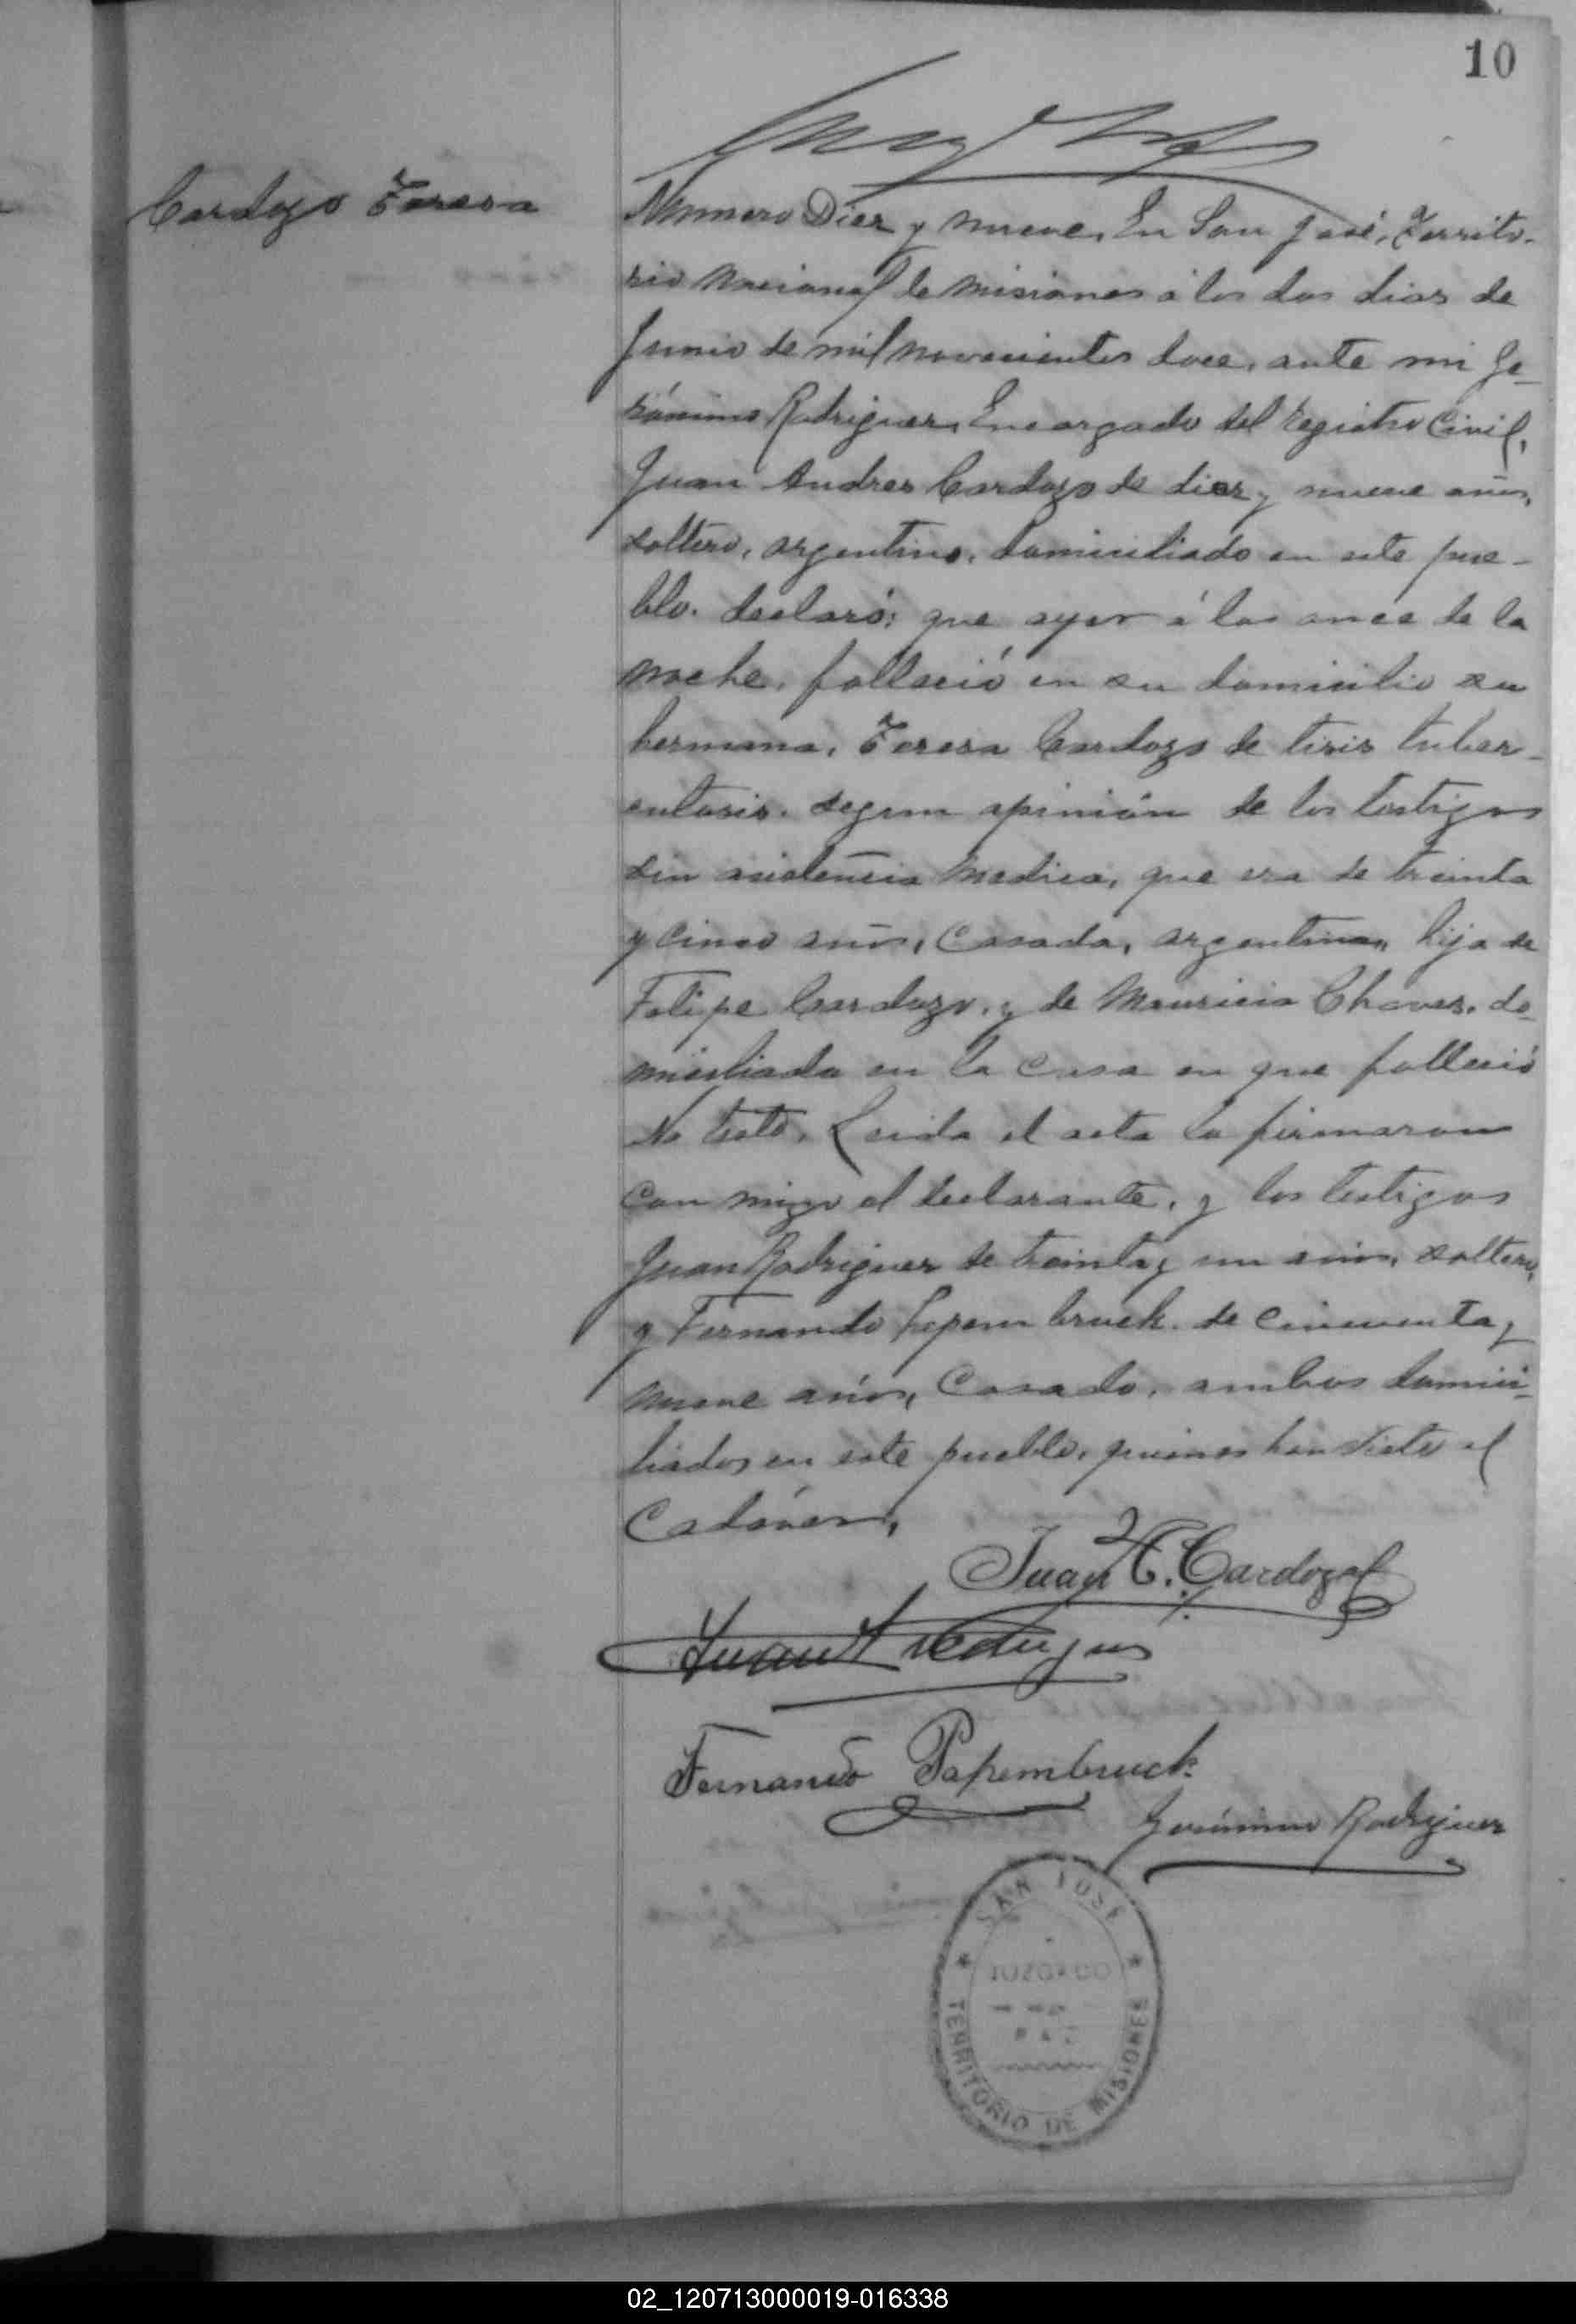 10
Cardozo Teresa
Numero Diez y nueve. En San José, Territo-
rio Nacional de Misiones á los dos dias de
Junio de mil novecientos doce, ante mi Ge-
rónimo Rodriguez, Encargado del Registro Civil,
Juan Andres Cardozo de diez y nueve años,
soltero, argentino, domiciliado en este pue-
blo. declaró: que ayer á las once de la
noche, falleció en su domicilio su
hermana, Teresa Cardozo de tisis tuber-
culosis. segun opinión de los testigos
sin asistencia medica, que era de treinta
y cinco años, casada, argentina, hija de
Felipe Cardozo, y de Mauricia Chaves, do-
miciliada en la casa en que falleció
No testó. Leida el acta la firmaron
con migo el declarante, y los testigos
Juan Rodriguez de treinta y un años, soltero,
y Fernando Papembruck. de cincuenta y
nueve años, Casado, ambos domici-
liados en este pueblo, quienes han visto el
Cadáver,
Juan A. Cardozo
Juan Rodriguez
Fernando Papembruck
Gerónimo Rodriguez
SAN JOSE
JUZGADO
DE
PAZ
TERRITORIO DE MISIONES
02_120713000019-016338